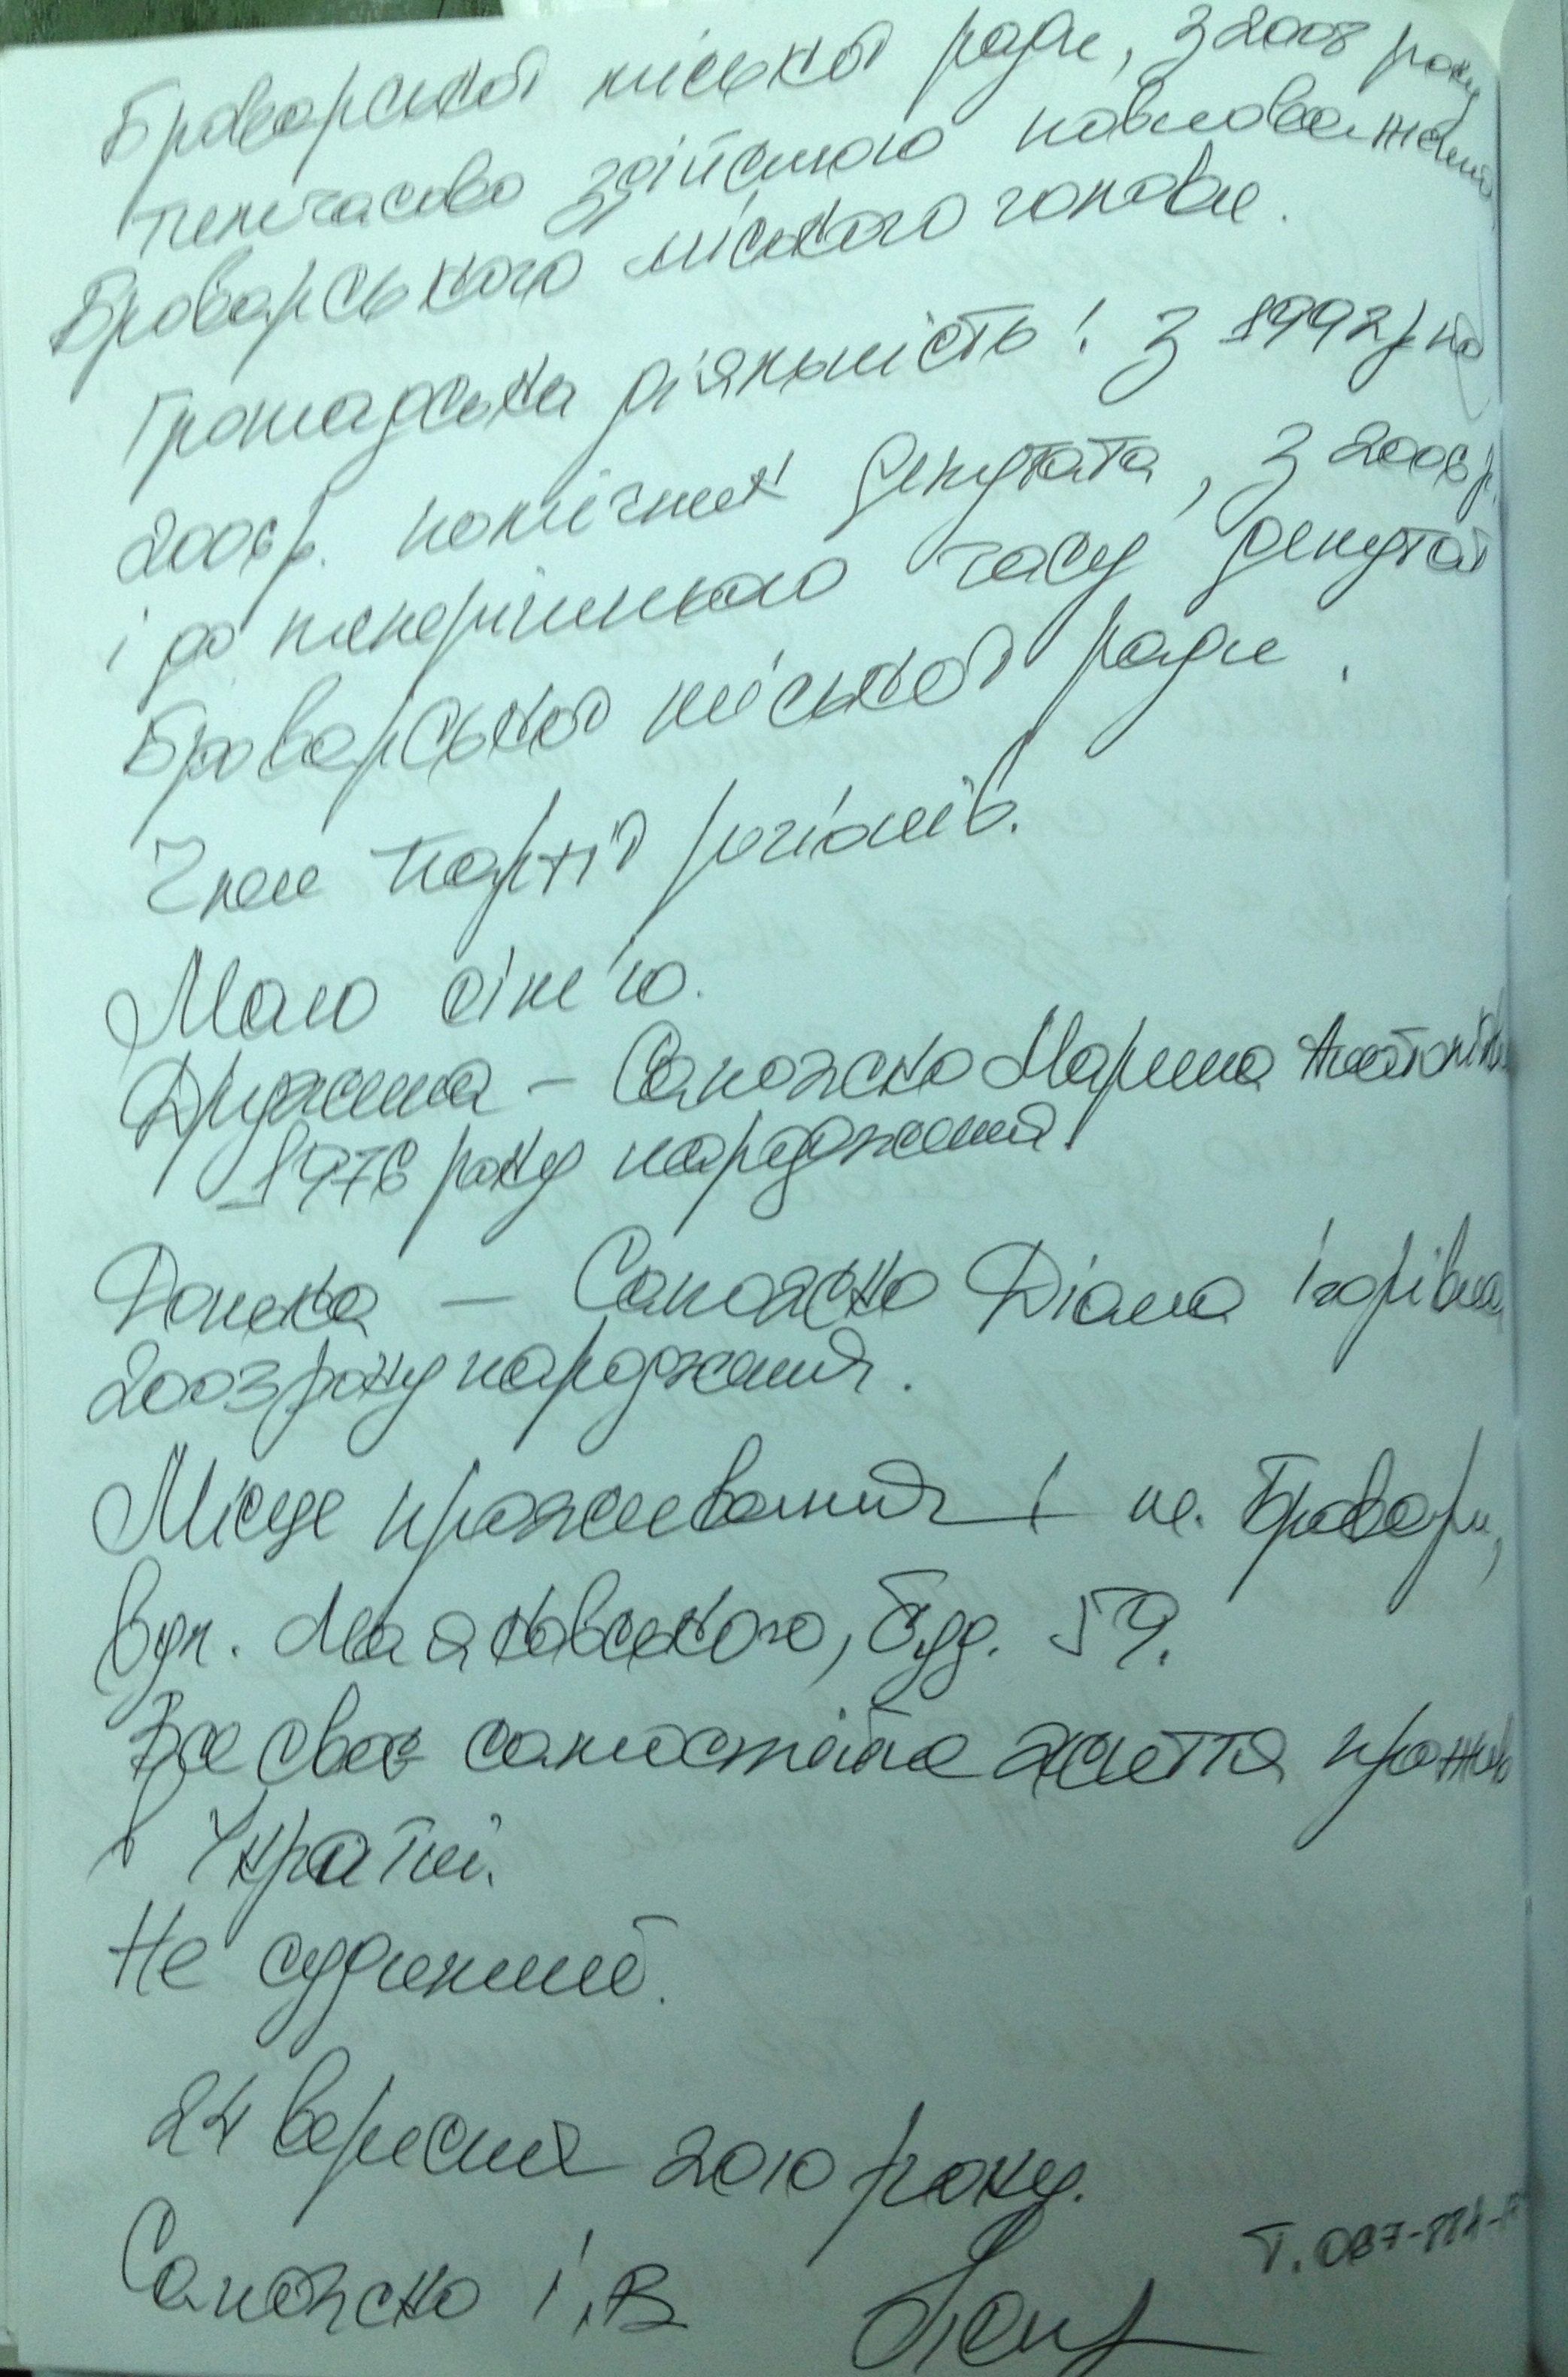 Броварської міської ради, з 2008 року
тимчасово здійснюю повноваження
Броварського міського голови.
Громадська діяльність: з 1992р по
2006р. помічник депутата, з 2006р.
і до теперішнього часу депутат
Броварської міської ради.
Член Партії регіонів.
Маю сім'ю.
Дружина – Сапожко Марина Анатоліївна
1976 року народження.
Донька – Сапожко Діана Ігорівна
2003 року народження.
Місце проживання: м. Бровари,
вул. Маяковського, буд. 59.
Все своє самостійне життя прожив
в Україні.
Не судимий.
24 вересня 2010 року.
Сапожко І.В
Т. 067-